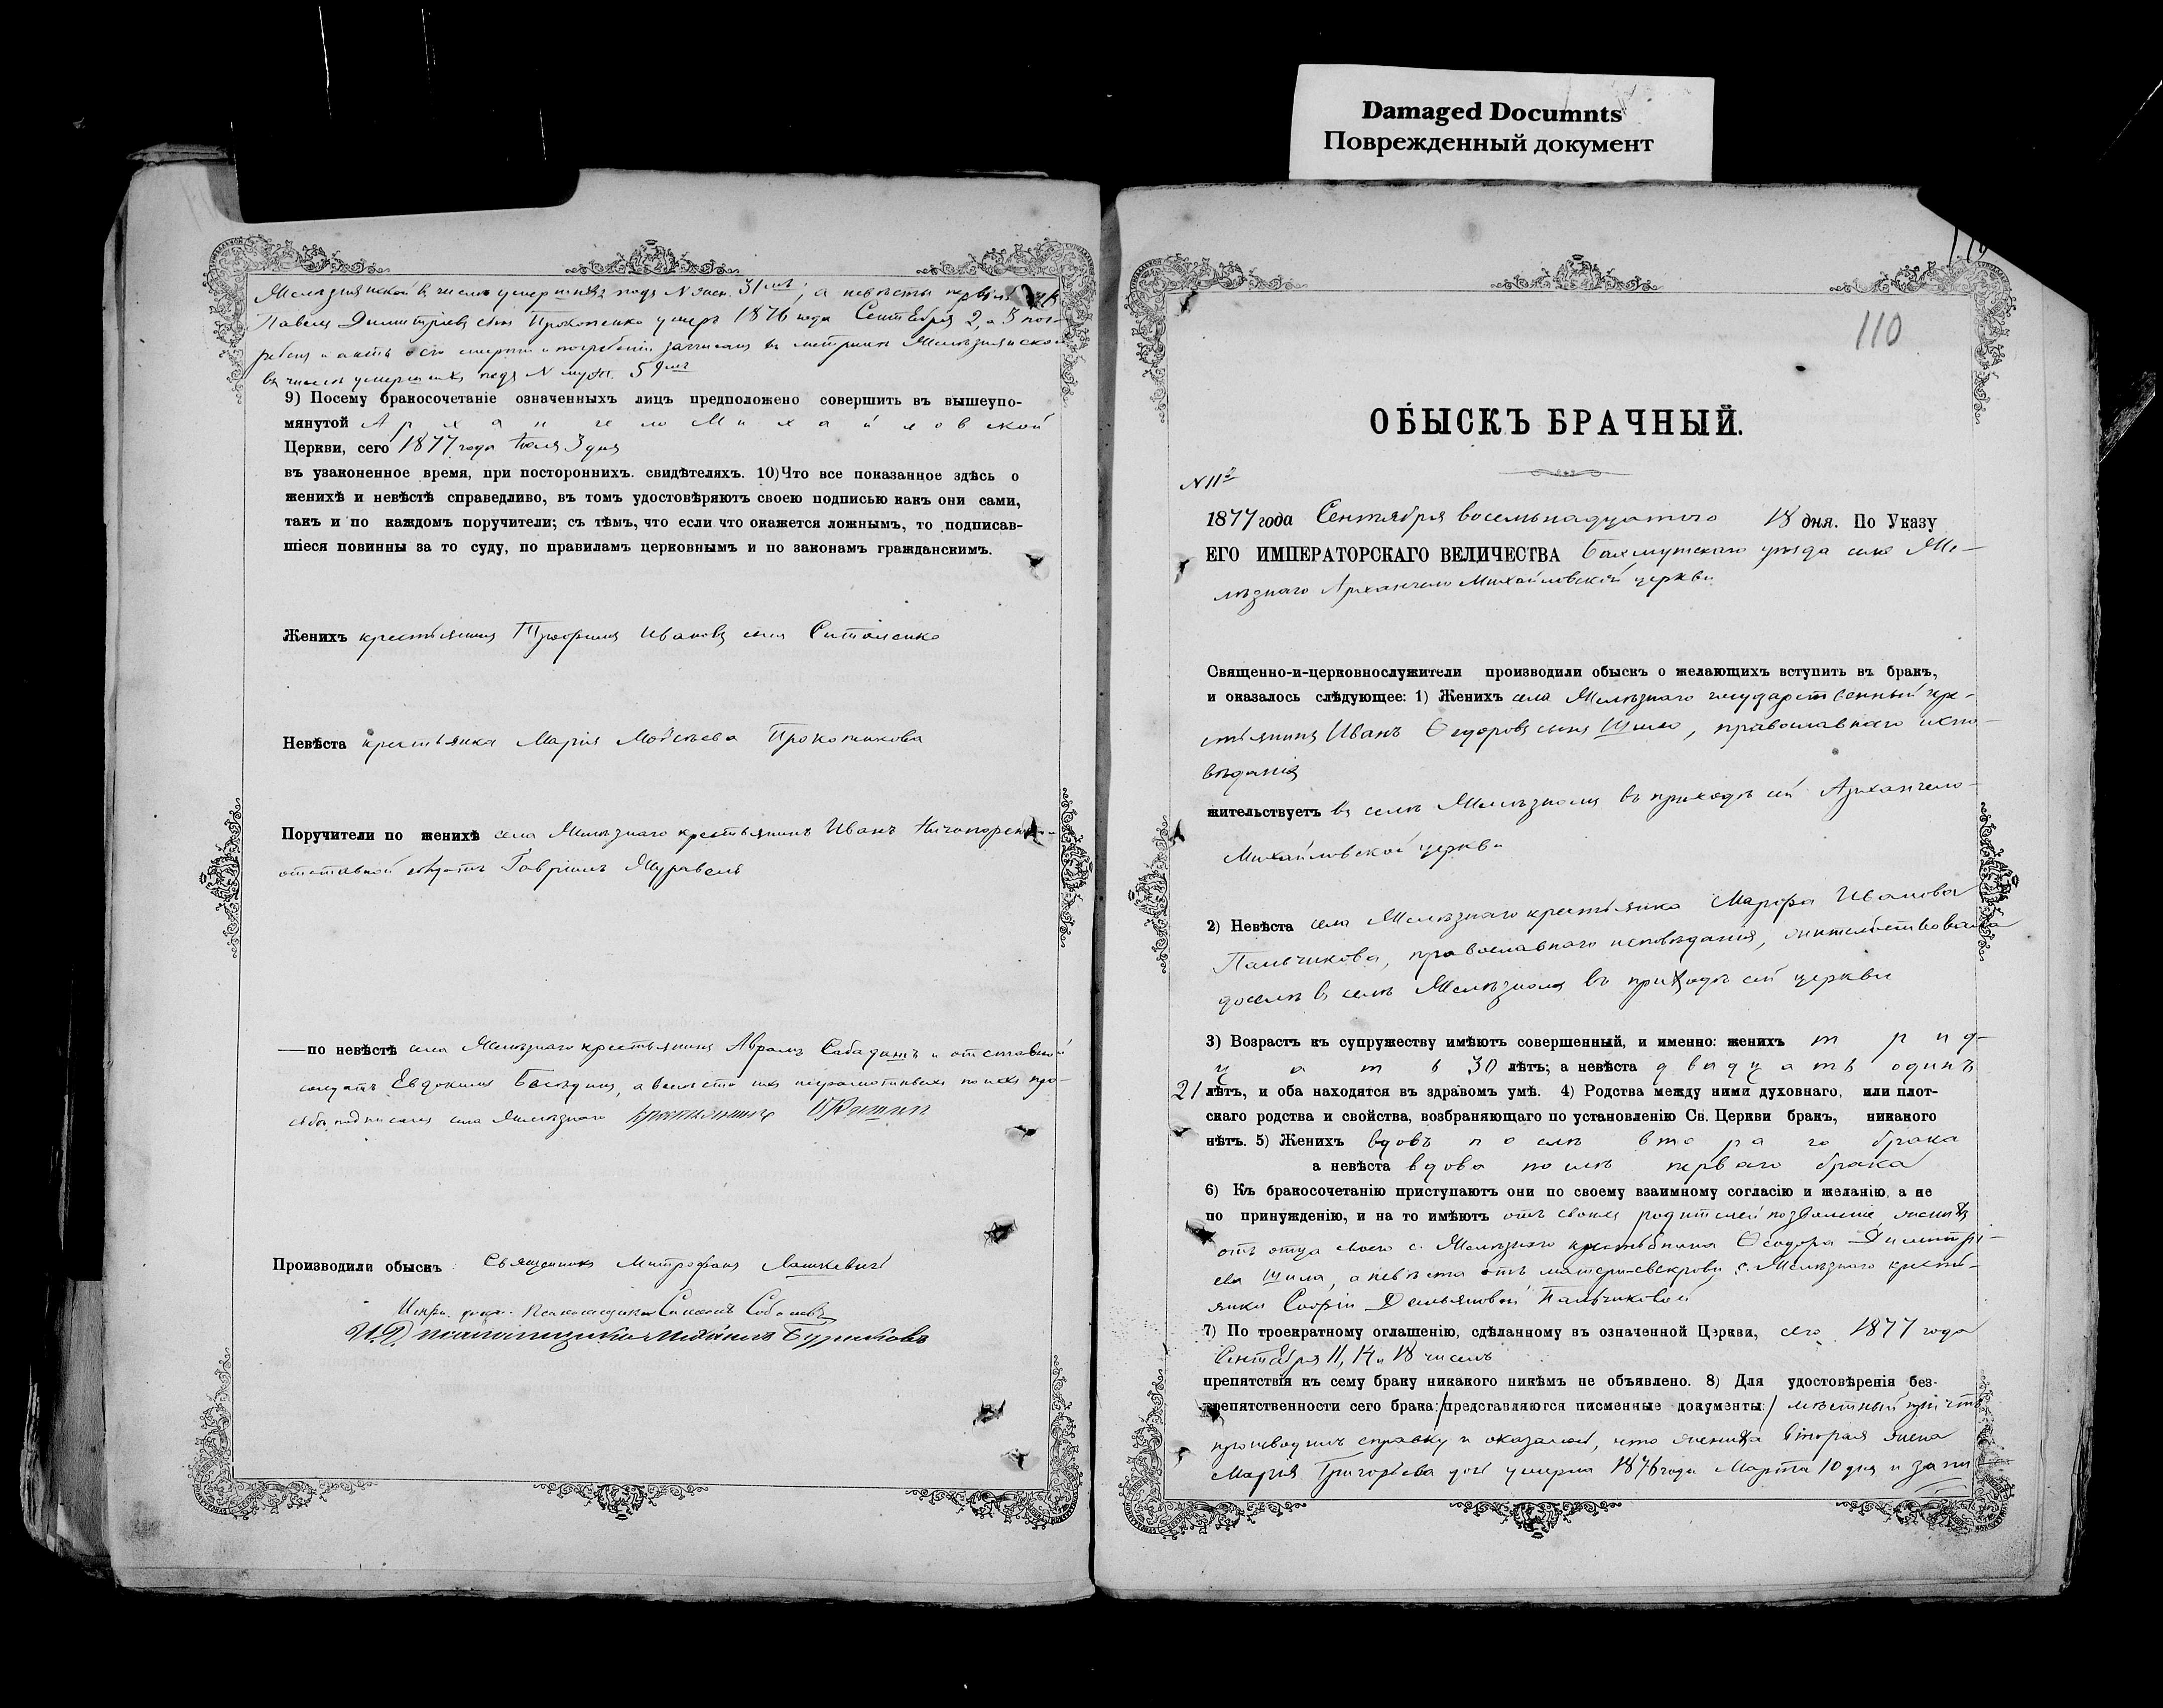 Damaged Documnts
Поврежденный документ
Желѣзнянской въ числѣ умершихъ подъ N жен. 31мъ; а невѣсты первый
Павелъ Димитріевъ сынъ Прокопенко умеръ 1876 года Сентября 2, а 3 пог-
ребенъ и актъ о его смерти и погребеніи записанъ въ метрикѣ Желѣзнянской
въ числѣ умершихъ подъ N муж. 59мъ
9) Посему бракосочетаніе означенныхъ лицъ предположено совершить въ вышеупо-
мянутой Архангело Михайловской
Церкви, сего 1877 года Іюля 3 дня
въ узаконенное время, при постороннихъ. свидѣтеляхъ. 10) Что все показанное здѣсь о
женихѣ и невѣстѣ справедливо, въ томъ удостовѣряютъ своею подписью какъ они сами,
такъ и по каждомъ поручители; съ тѣмъ, что если что окажется ложнымъ, то подписав-
шіеся повинны за то суду, по правиламъ церковнымъ и по законамъ гражданскимъ.
Женихъ крестьянинъ Трофимъ Ивановъ сынъ Ситоленко
Невѣста крестьянка Марія Моѵсеева Прокопикова
Поручители по женихѣ села Желѣзнаго крестьянинъ Иванъ Ничипоренко
отставной солдатъ Гавріилъ Журавель
—по невѣстѣ села Желѣзнаго крестьянинъ Аврамъ Сабадашъ и отставный
солдатъ Евдокимъ Бѣлединъ, а вмѣсто ихъ неграмотныхъ по ихъ про-
сьбѣ подписался села Желѣзнаго крестьянинъ
Производили обыскъ Священникъ Митрофанъ Лашкевичъ
Псаломщикъ Симеонъ Соболевъ
И. Д. псаломщика Михаилъ Буршковъ
110
ОБЫСКЪ БРАЧНЫЙ.
N 11й
1877 года Сентября восемьнадцатого 18 дня. По Указу
ЕГО ИМПЕРАТОРСКАГО ВЕЛИЧЕСТВА Бахмутскаго уѣзда села Же-
лѣзнаго Архангело Михайловской церкви
Священно-и-церковнослужители производили обыскъ о желающихъ вступить въ бракъ,
и оказалось слѣдующее: 1) Женихъ села Желѣзнаго государственный кре-
стьянинъ Иванъ Ѳедоровъ сынъ Шило, православнаго испо-
вѣданія
жительствуетъ въ селѣ Желѣзномъ въ приходѣ сей Архангело-
Михайловской церкви
2) Невѣста села Желѣзнаго крестьянка Марфа Иванова
Пальчикова, православнаго исповѣданія, жительствовала
доселѣ въ селѣ Желѣзномъ въ приходѣ сей церкви
3) Возрастъ къ супружеству имѣютъ совершенный, и именно: женихъ трид-
цать 30 лѣтъ; а невѣста двадцать одинъ
21 лѣтъ, и оба находятся въ здравомъ умѣ. 4) Родства между ними духовнаго, или плот-
скаго родства и свойства, возбраняющаго по установленію Св. Церкви бракъ, никакого
нѣтъ. 5) Женихъ вдовъ послѣ втораго брака
а невѣста вдова послѣ перваго брака
6) Къ бракосочетанію приступаютъ они по своему взаимному согласію и желанію, а не
по принужденію, и на то имѣютъ отъ своихъ родителей позволеніе, женихъ
отъ отца своего с. Желѣзнаго крестьянина Ѳеодора Димитрі-
ева Шила, а невѣста отъ матери-свекрови, с. Желѣзнаго кресть-
янки Софіи Демьяновой Пальчиковой
7) По троекратному оглашенію, сдѣланному въ означенной Церкви, сего 1877 года
Сентября 11, 14 и 18 числъ
препятствія къ сему браку никакого никѣмъ не объявлено. 8) Для удостовѣренія без-
препятственности сего брака:/представляются писменные документы:/ мѣстный причтъ
производилъ справку и оказалось, что жениха вторая жена
Марія Григорьева дочь умерла 1876 года Марта 10 дня и запи